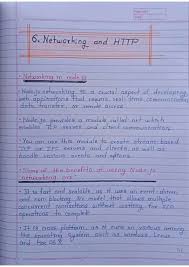 6. Networking and HTTP
• Networking in node.js
• Node.js networking is a crucial aspect of developing
web applications that require real time communication
data transfer, or remote access.
• Node.js provides a module called net which
enables TCP server and client communications.
• You can use this module to create streams-based
TCP or IPC servers and clients, as well as
handle various events and options
• Some of the benefits of using Node.js
networking are:-
• It is fast and scalable as it uses an event-driven
and non-blocking I/O model that allows multiple
concurrent connections without waiting for I/O
operations to complete
• It is cross platform, as it runs on various
operating systems such as windows, Linux
and